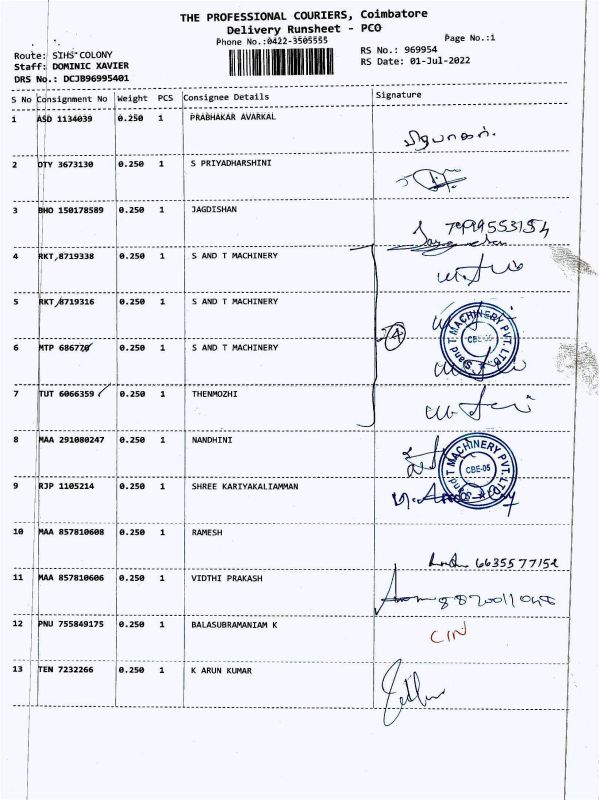 THE PROFESSIONAL COURIERS, Coimbatore
Delivery Runsheet - PCO
Phone No.:0422-3505555
Page No.:1
Route: SIHS COLONY
Staff: DOMINIC XAVIER
DRS No.: DCJB96995401
RS No.: 969954
RS Date: 01-Jul-2022
S No Consignment No Weight PCS Consignee Details Signature
1 ASD 1134039 0.250 1 PRABHAKAR AVARKAL
2 DTY 3673130 0.250 1 S PRIYADHARSHINI
3 BHO 150178589 0.250 1 JAGDISHAN
4 RKT 8719338 0.250 1 S AND T MACHINERY
5 RKT 8719316 0.250 1 S AND T MACHINERY
6 MTP 686770 0.250 1 S AND T MACHINERY
4
7 TUT 6066359 0.250 1 THENMOZHI
8 MAA 291080247 0.250 1 NANDHINI
9 RJP 1105214 0.250 1 SHREE KARIYAKALIAMMAN
S and T MACHINERY PVT. LTD.
CBE-05
S and T MACHINERY PVT. LTD.
CBE-05
10 MAA 857810608 0.250 1 RAMESH
11 MAA 857810606 0.250 1 VIDTHI PRAKASH
12 PNU 755849175 0.250 1 BALASUBRAMANIAM K
CIN
13 TEN 7232266 0.250 1 K ARUN KUMAR